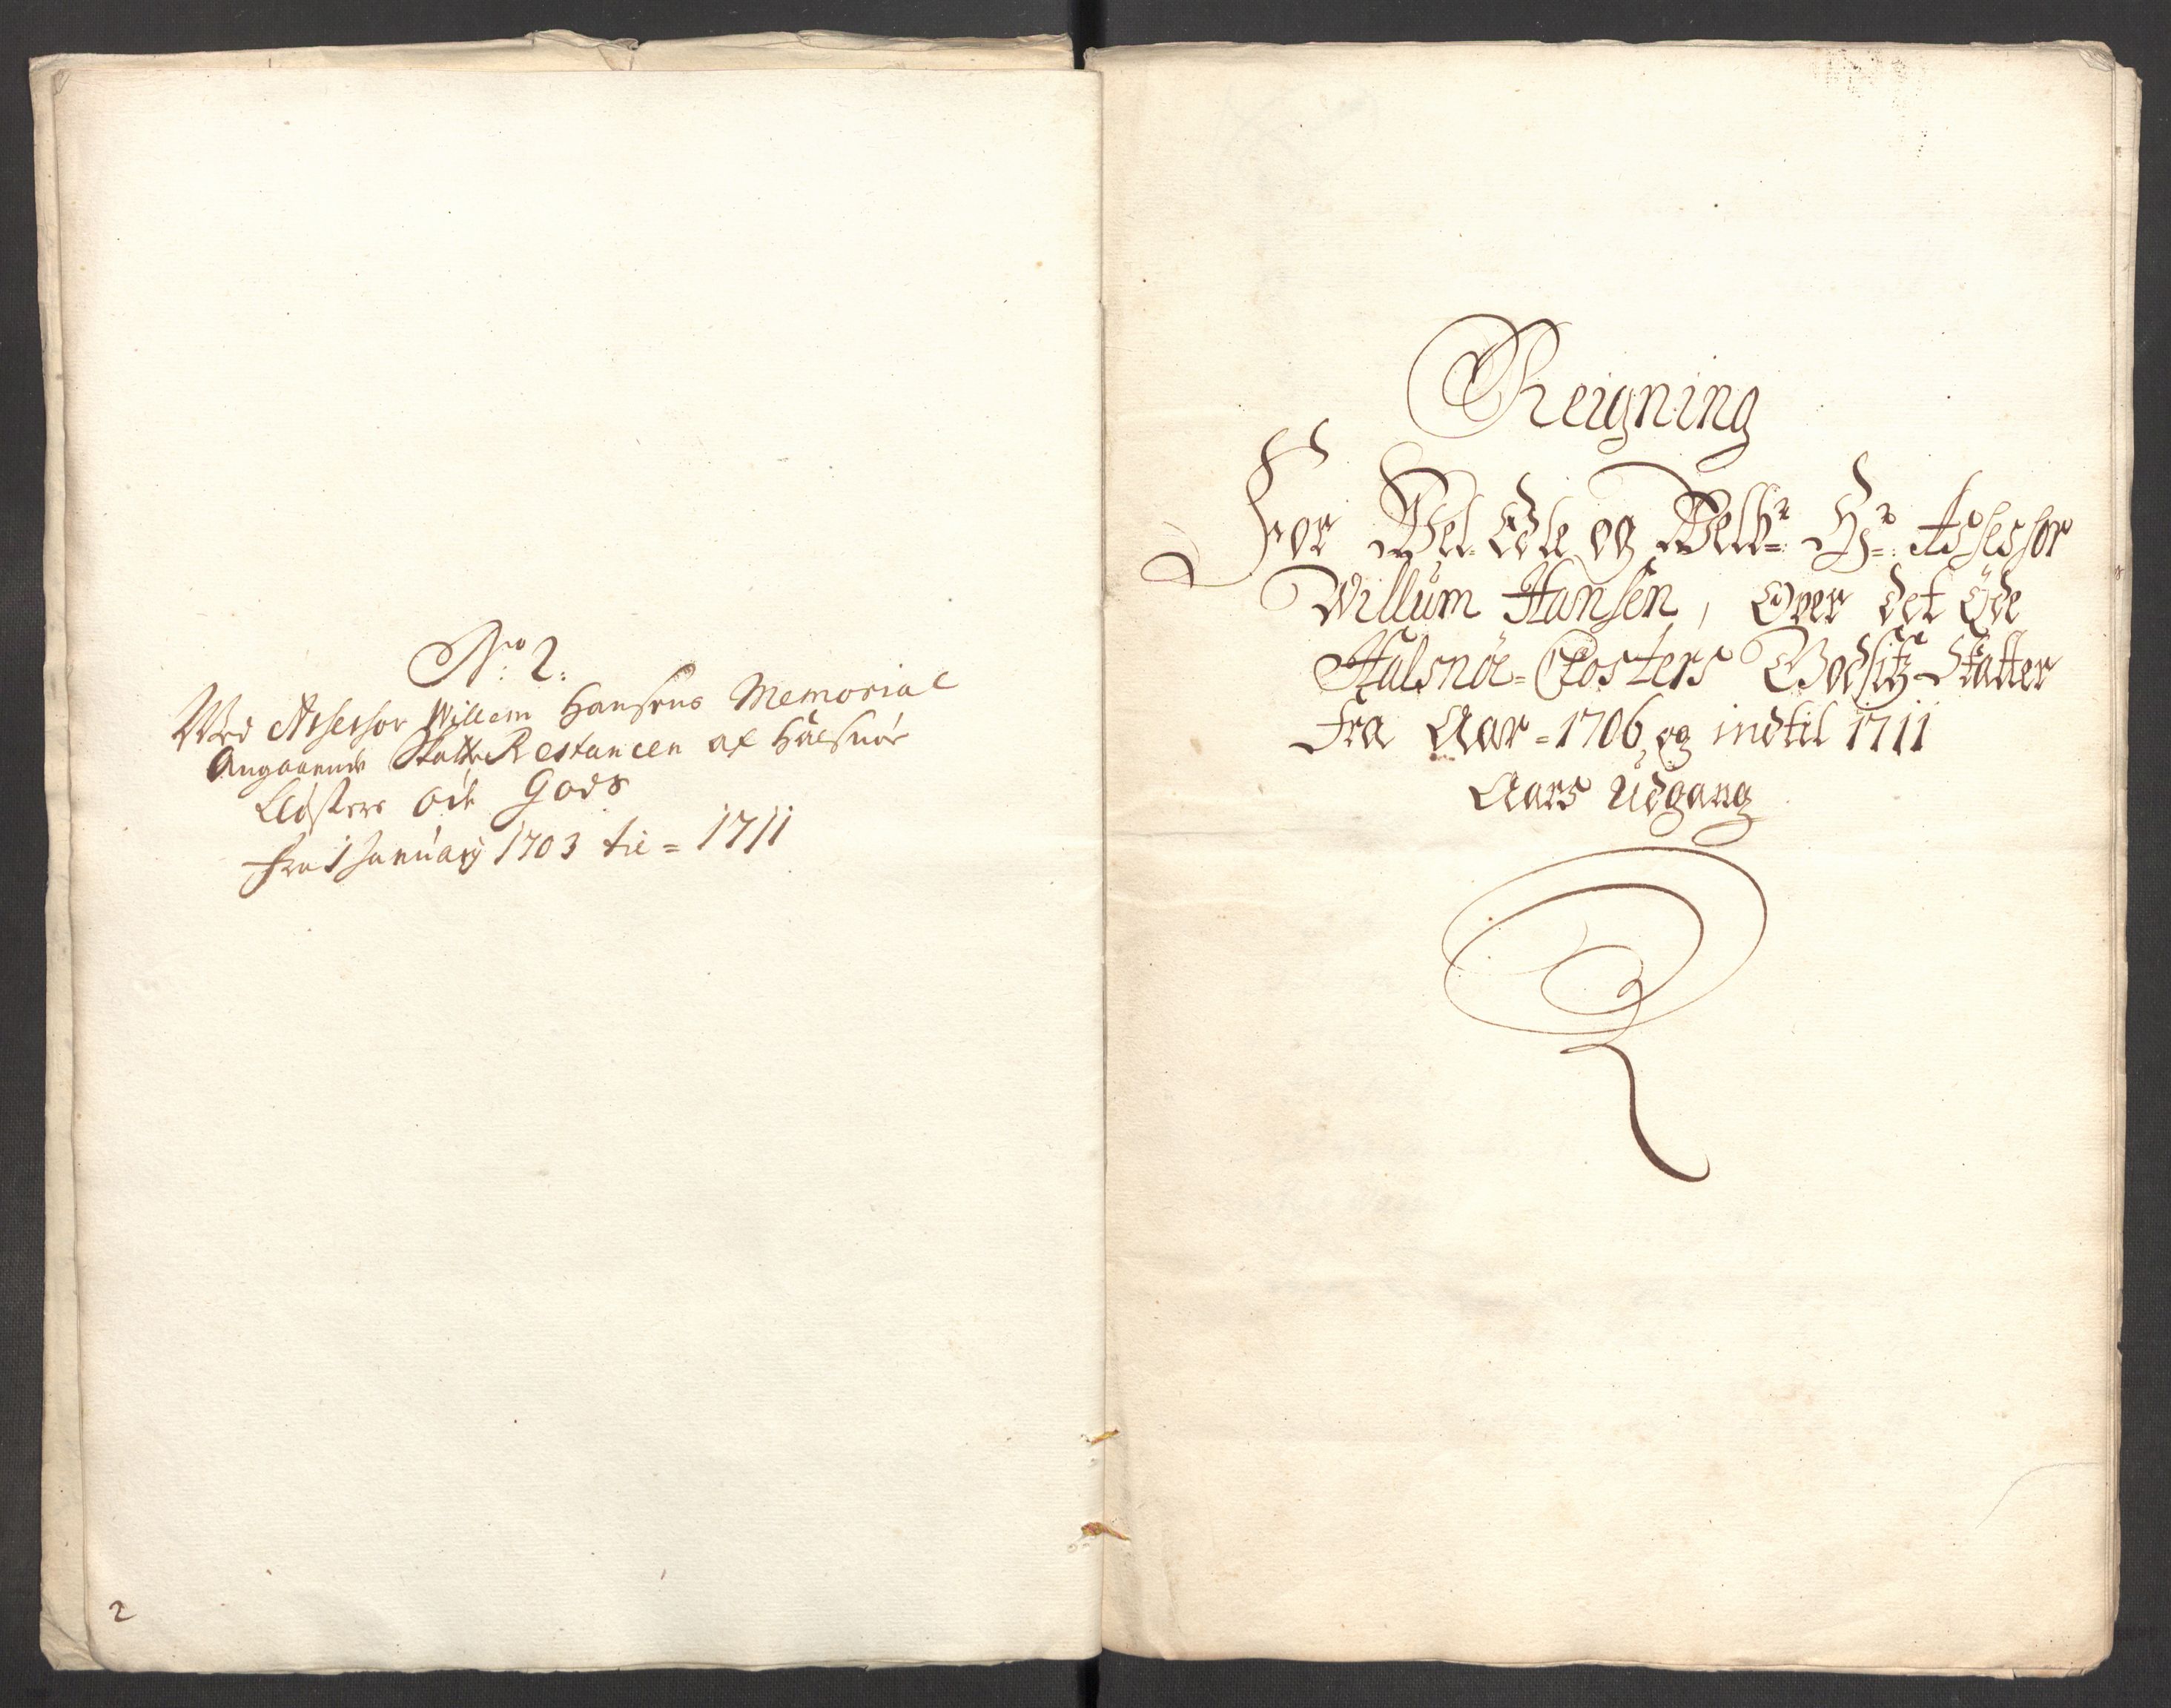 No 2.
Ved Assessor Willem Hansens Memorial
Angaaende Skatte Restancen af Halsnöe
Closters öde Gods
fra 1 January 1703 til = 1711
2
Reigning
For Vel Edle og Velbr: Hr: Assessor
Willum Hansen, Over det öde
Halsnöe=Closters Godsitz Skatter
Fra Aar =1706 og indtil 1711
Aars Udgang